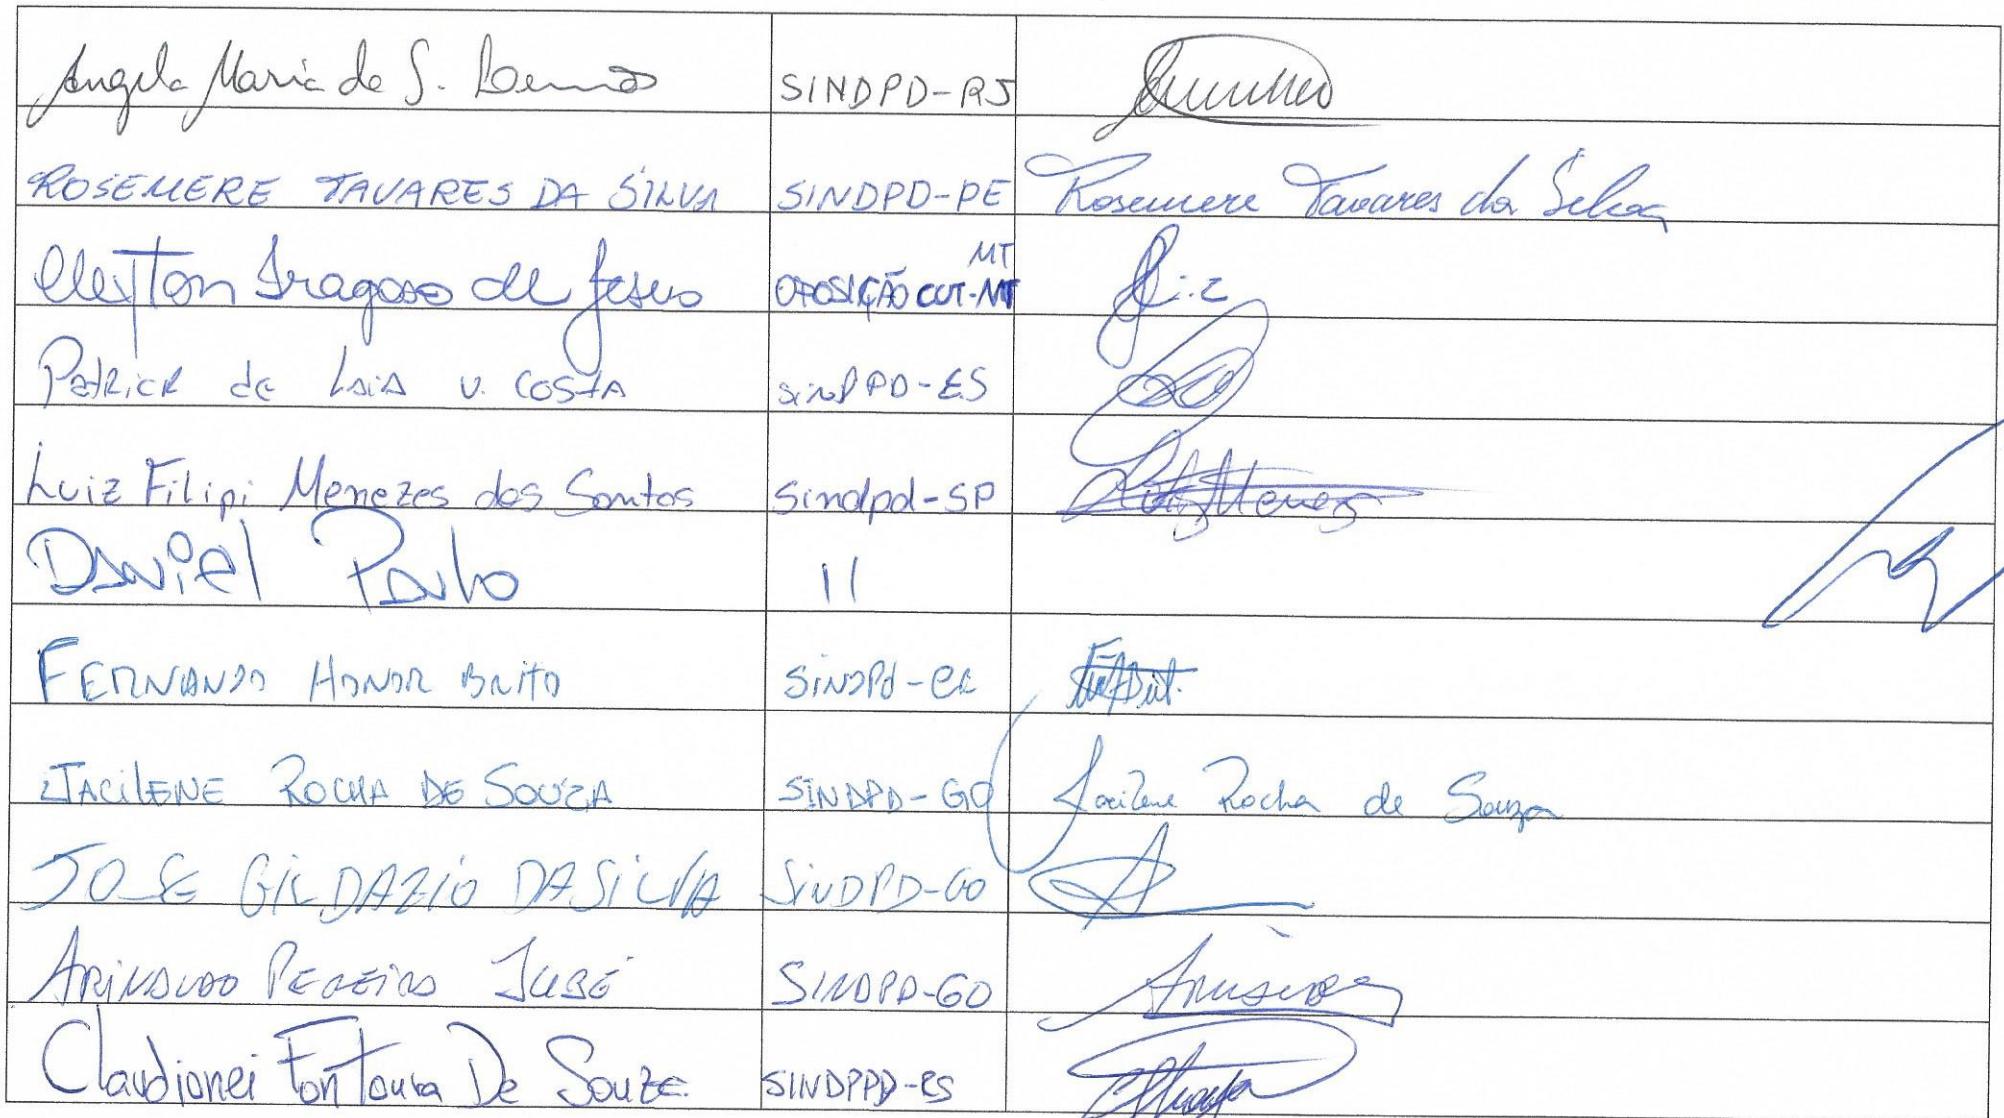 Angela Maria de S. SINDPD-RJ
ROSEMERE TAVARES DA SILVA SINDPD-PE Rosemere Tavares da Silva
MT
Cleyton Fragoso de Jesus OPOSIÇÃO CUT-MT
Patrick de V. COSTA SINDPPD-ES
Luiz Filipi Menezes dos Santos Sindpd-SP Luiz Menezes
DANIEL Paulo 11
FERNANDO HONOR BRITO SINDPd-CE
JACILENE ROCHA DE SOUZA SINDPD-GO Jacilene Rocha de Souza
JOSE GILDAZIO DA SILVA SINDPD-GO
ARINALDO PEREIRA JUBÉ SINDPD-GO
Claudionei Fontoura De Souze SINDPPD-RS